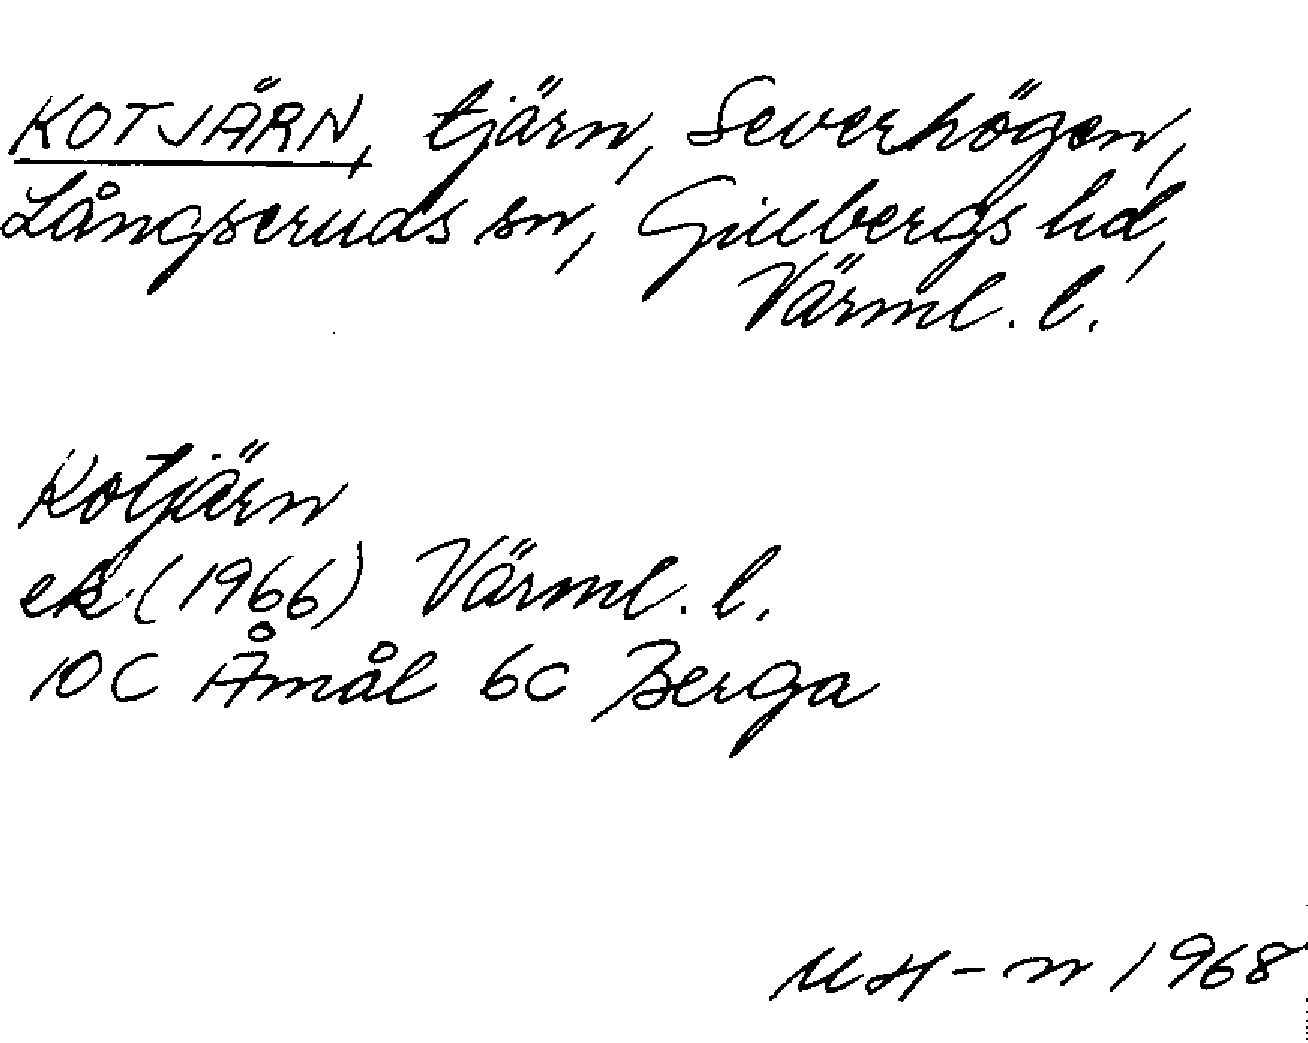 KOTJÄRN, tjärn, Severhögen,
Långseruds sn, Gillbergs hd,
Värml. l.
Kotjärn
ek (1966) Värml. l.
10C Åmål 6c Berga
MH-n 1968